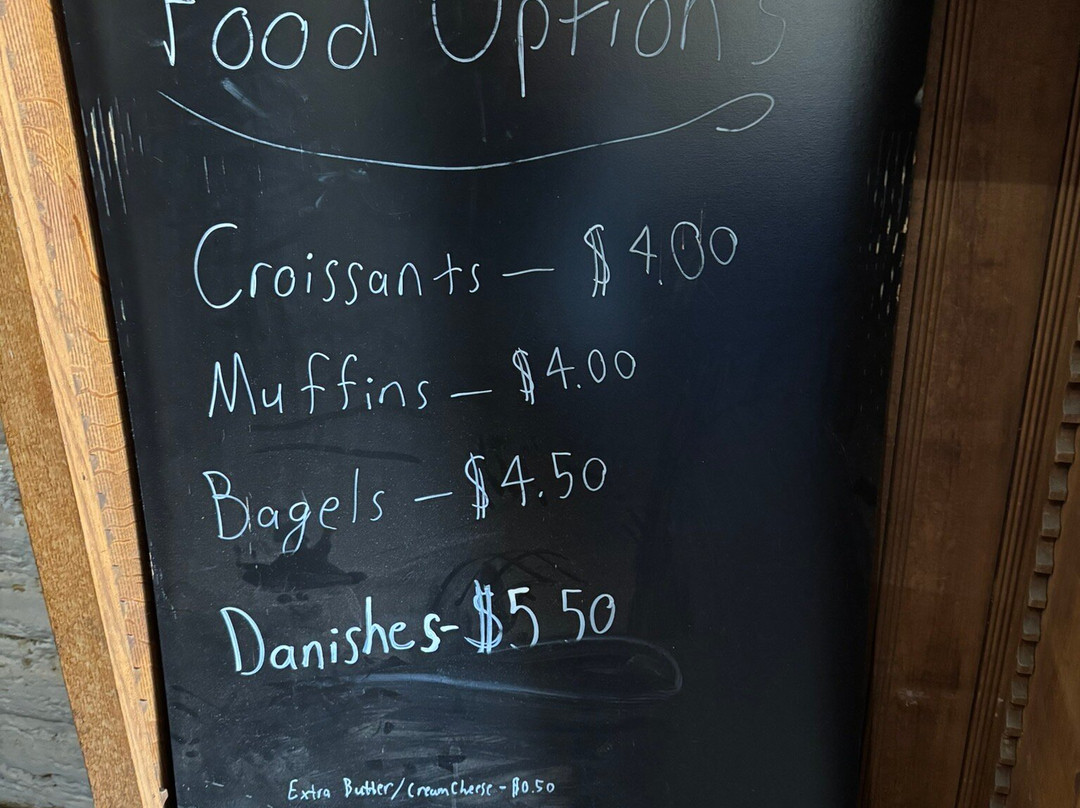 Food Options
Croissants — $4.00
Muffins — $4.00
Bagels — $4.50
Danishes - $5 50
Extra Butter/Cream Cheese - $0.50